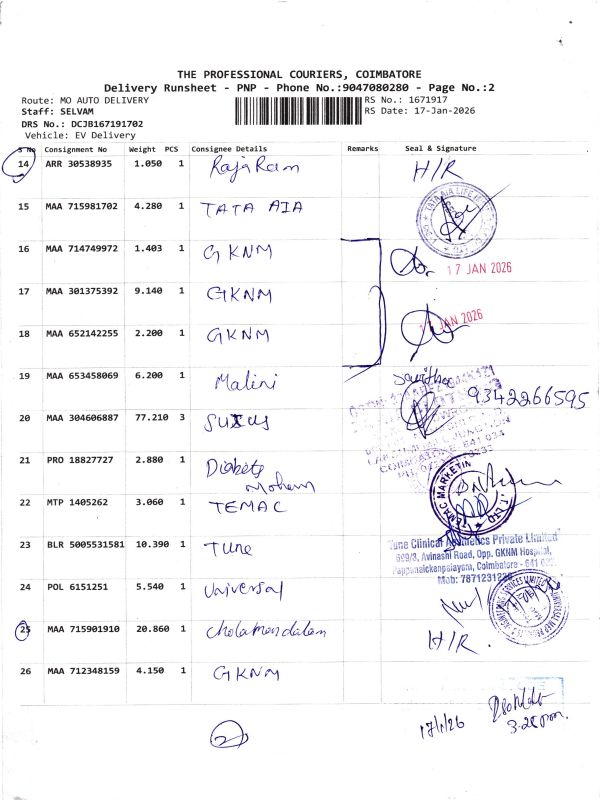 THE PROFESSIONAL COURIERS, COIMBATORE
Delivery Runsheet - PNP - Phone No.:9047080280 - Page No.:2
Route: MO AUTO DELIVERY
RS No.: 1671917
Staff: SELVAM
RS Date: 17-Jan-2026
DRS No.: DCJB167191702
Vehicle: EV Delivery
S No Consignment No Weight PCS Consignee Details Remarks Seal & Signature
14 ARR 30538935 1.050 1 Raja Ram H/R
15 MAA 715981702 4.280 1 TATA AIA
16 MAA 714749972 1.403 1 GKNM 17 JAN 2026
17 MAA 301375392 9.140 1 GKNM
18 MAA 652142255 2.200 1 GKNM JAN 2026
19 MAA 653458069 6.200 1 Malini
9342266595
20 MAA 304606887 77.210 3
21 PRO 18827727 2.880 1 Diabets
22 MTP 1405262 3.060 1 TEMAC
23 BLR 5005531581 10.390 1 Tune
Tune Clinical Aesthetics Private Limited
609/3, Avinashi Road, Opp. GKNM Hospital,
Pappanaickenpalayam, Coimbatore - 641
Mob: 7871231
24 POL 6151251 5.540 1 Universal
25 MAA 715901910 20.860 1 Cholamandalam H/R.
26 MAA 712348159 4.150 1 GKNM
17/1/26
3.28 pm.
2